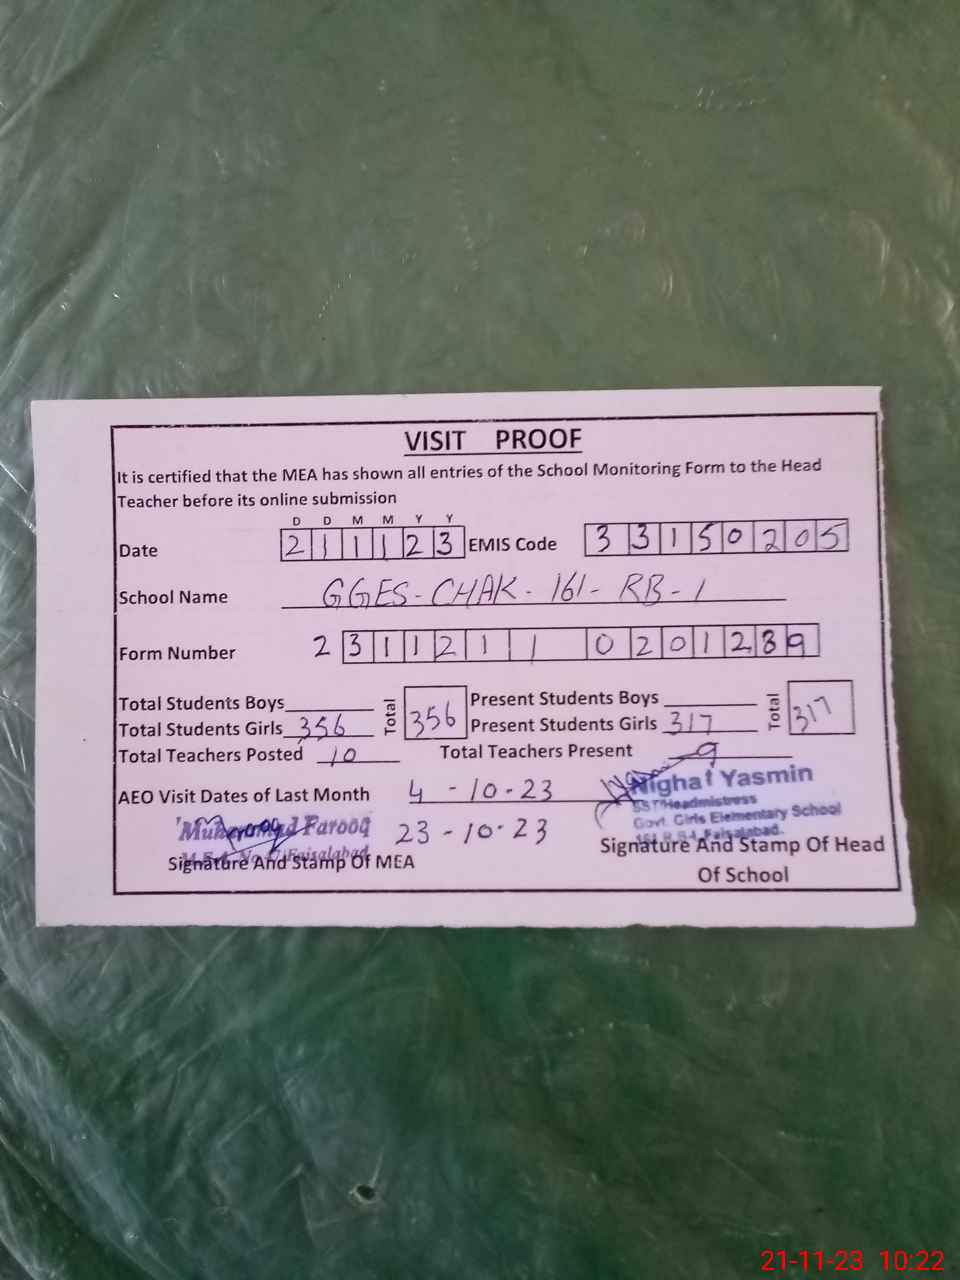 VISIT PROOF
It is certified that the MEA has shown all entries of the School Monitoring Form to the Head
Teacher before its online submission
D D M M Y Y
Date 2 1 1 1 2 3 EMIS Code 3 3 1 5 0 2 0 5
School Name GGES - CHAK - 161 - RB - 1
Form Number 2 3 1 1 2 1 1 1 0 2 0 1 2 8 9
Total Students Boys Total 356 Present Students Boys Total 317
Total Students Girls 356 Present Students Girls 317
Total Teachers Posted 10 Total Teachers Present 9
AEO Visit Dates of Last Month 4 - 10 - 23
23 - 10 - 23
Muhammad Farooq
Faisalabad
Signature And Stamp Of MEA
Nighat Yasmin
SST/Headmistress
Govt. Girls Elementary School
Faisalabad.
Signature And Stamp Of Head
Of School
21-11-23 10:22